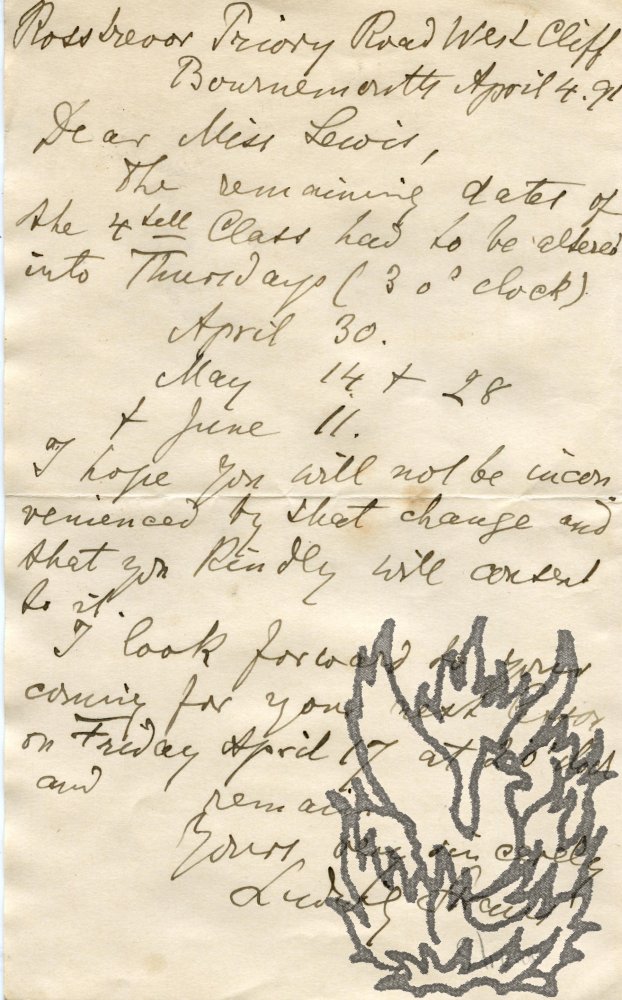 Rosstrevor Priory Road West Cliff
Bournemouth April 4. 91
Dear Miss Lewis,
The remaining dates of
the 4 Class had to be altered
into Thursdays (3 o'clock)
April 30.
May 14 + 28
+ June 11.
I hope you will not be incon
venienced by that change and
that you kindly will consent
to it.
I look forward to your
coming for your next
on Friday April 17 at 2 o'clock
and remain
Yours very sincerely
Ludwig